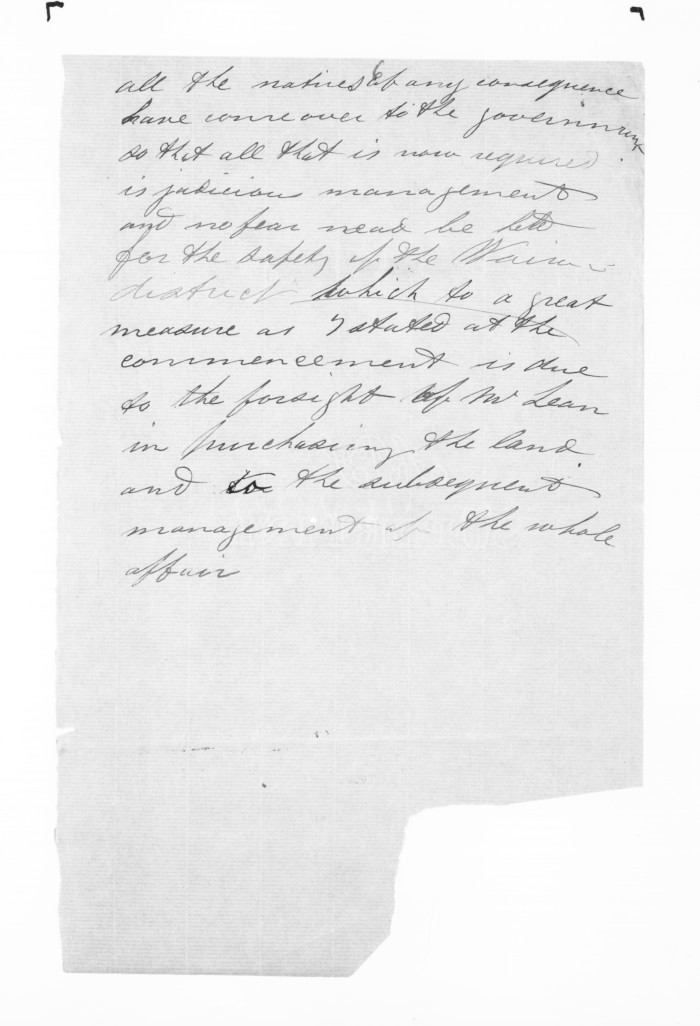 all the natives of any consequence
have come over to the government
so that all that is now required
is judicious management
and no fear need be felt
for the safety of the Wairoa
district which to a great
measure as I stated at the
commencement is due
to the forsight of Mr Lean
in purchasing the land
and to the subsequent
management of the whole
affair